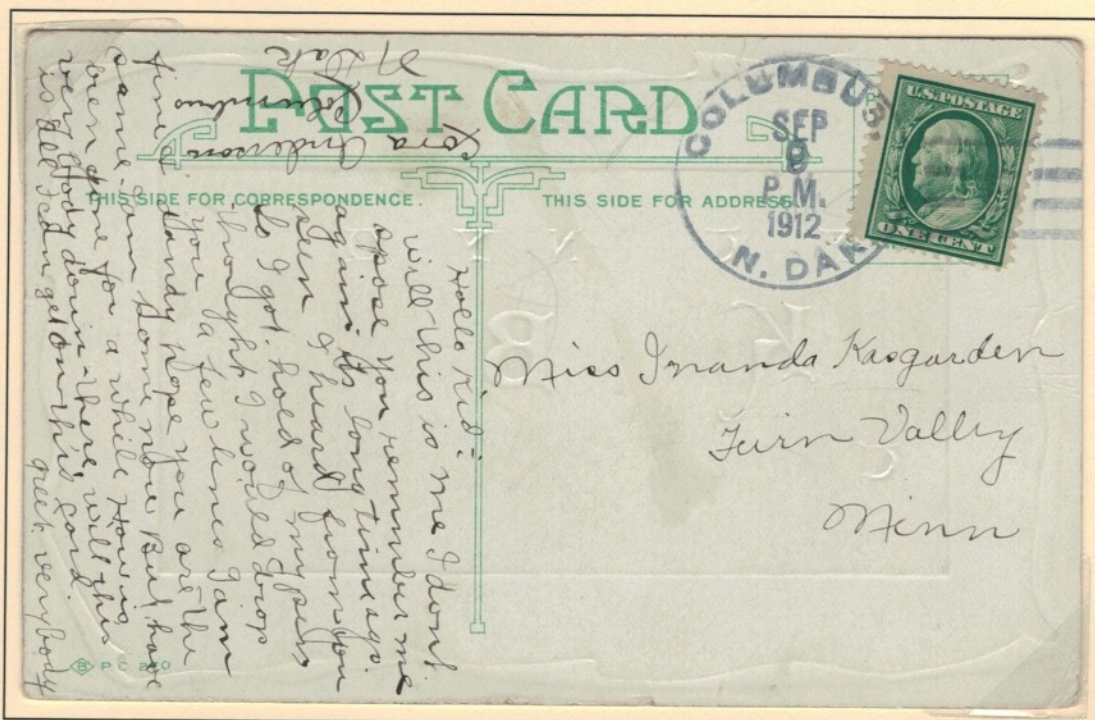 POST CARD
THIS SIDE FOR CORRESPONDENCE.
THIS SIDE FOR ADDRESS.
COLUMBUS,
SEP
9
P.M.
1912
N. DAK.
U.S. POSTAGE
ONE CENT
Miss Inanda Kasgarden
Twin Valley
Minn
Hello Kid:
will this is me I dont
opose you remmber me
again. its long time ago.
seen I heard from you
so I got hold of my pen
thought I would drop
you a few lines I am
dandy hope you are the
same. am home now But have
been gone for a while How is
very Body down there, will this
is all I can get on this card.
greet verybody
Cora Anderson
Columbus
N Dak
P.C. 200